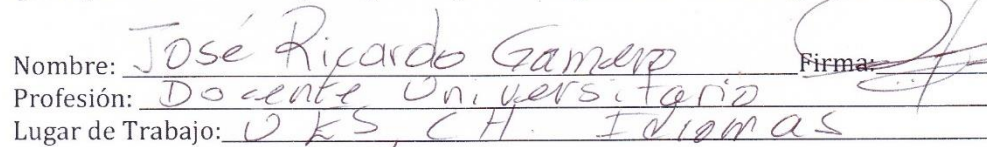 Nombre: José Ricardo Gamero Firma:
Profesión: Docente Universitario
Lugar de Trabajo: UES, CH. Idiomas